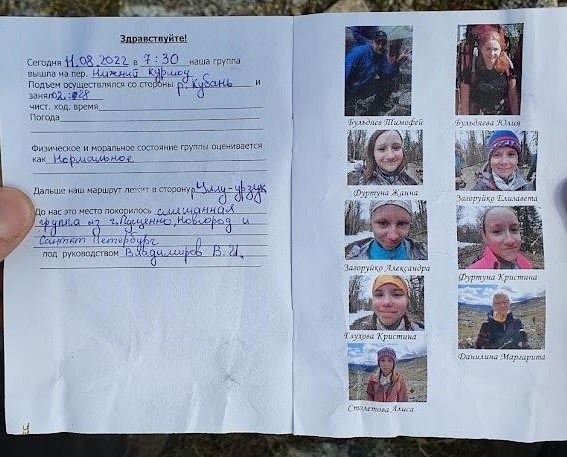 Здравствуйте!
Сегодня 11.08.2022 в 7:30 наша группа
вышла на пер. Нижний Курмоу
Подъем осуществлялся со стороны р. Кубань и
занял 02:28
чист. ход. время
Погода
Физическое и моральное состояние группы оценивается
как Нормальное
Дальше наш маршрут лежит в сторону Уллу-Узук
До нас это место покорилось смешанная
группа из г. Ногород и
Санткт Петербург
под руководством Владимиров В. И.
Бульдяев Тимофей
Бульдяева Юлия
Фуртуна Жанна
Загоруйко Елизавета
Загоруйко Александра
Фуртуна Кристина
Глухова Кристина
Данилина Маргарита
Столетова Алиса